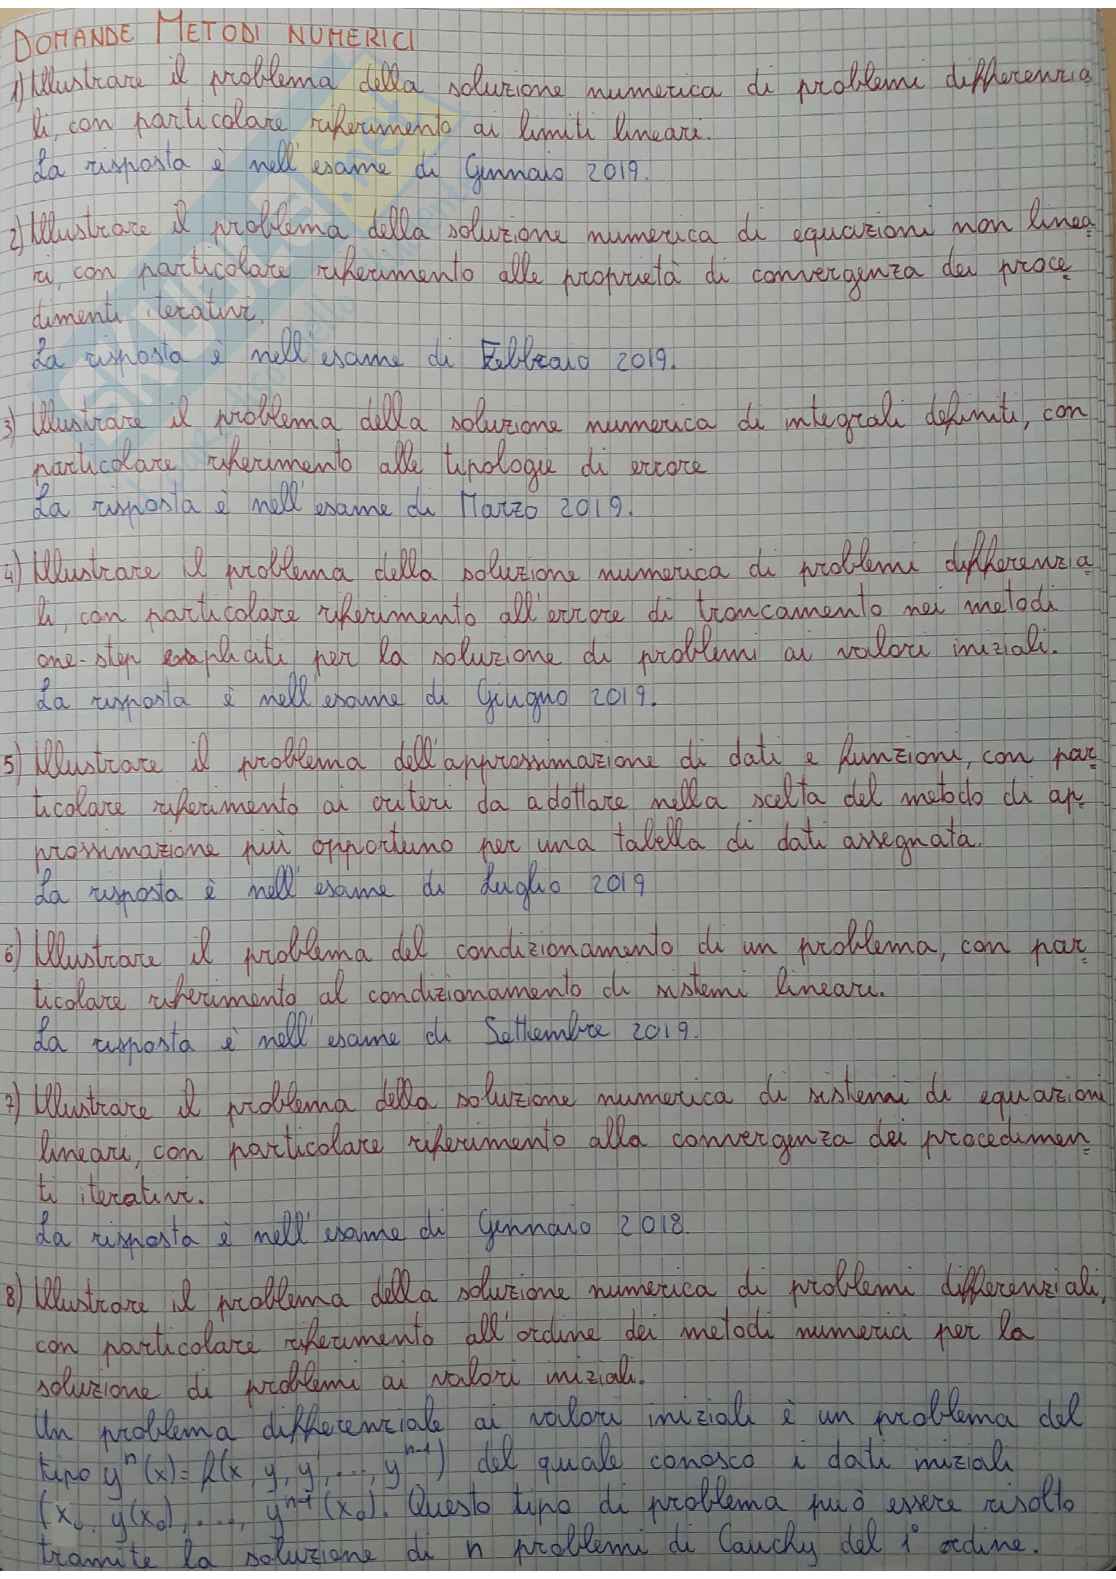 DOMANDE METODI NUMERICI
1) Illustrare il problema della soluzione numerica di problemi differenzia
li, con particolare riferimento ai limiti lineari.
La risposta è nell'esame di Gennaio 2019.
2) Illustrare il problema della soluzione numerica di equazioni non linea
ri, con particolare riferimento alle proprietà di convergenza dei proce
dimenti iterativi.
La risposta è nell'esame di Febbraio 2019.
3) Illustrare il problema della soluzione numerica di integrali definiti, con
particolare riferimento alle tipologie di errore
La risposta è nell'esame di Marzo 2019.
4) Illustrare il problema della soluzione numerica di problemi differenzia
li, con particolare riferimento all'errore di troncamento nei metodi
one-step espliciti per la soluzione di problemi ai valori iniziali.
La risposta è nell'esame di Giugno 2019.
5) Illustrare il problema dell'approssimazione di dati e funzioni, con par
ticolare riferimento ai criteri da adottare nella scelta del metodo di ap
prossimazione più opportuno per una tabella di dati assegnata.
La risposta è nell'esame di Luglio 2019
6) Illustrare il problema del condizionamento di un problema, con par
ticolare riferimento al condizionamento di sistemi lineari.
La risposta è nell'esame di Settembre 2019.
7) Illustrare il problema della soluzione numerica di sistemi di equazioni
lineari, con particolare riferimento alla convergenza dei procedimen
ti iterativi.
La risposta è nell'esame di Gennaio 2018.
8) Illustrare il problema della soluzione numerica di problemi differenziali,
con particolare riferimento all'ordine dei metodi numerici per la
soluzione di problemi ai valori iniziali.
Un problema differenziale ai valori iniziali è un problema del
tipo yⁿ(x)=f(x, y, y', ..., yⁿ⁻¹) del quale conosco i dati iniziali
(x₀, y(x₀), ..., yⁿ⁻¹(x₀). Questo tipo di problema può essere risolto
tramite la soluzione di n problemi di Cauchy del 1° ordine.